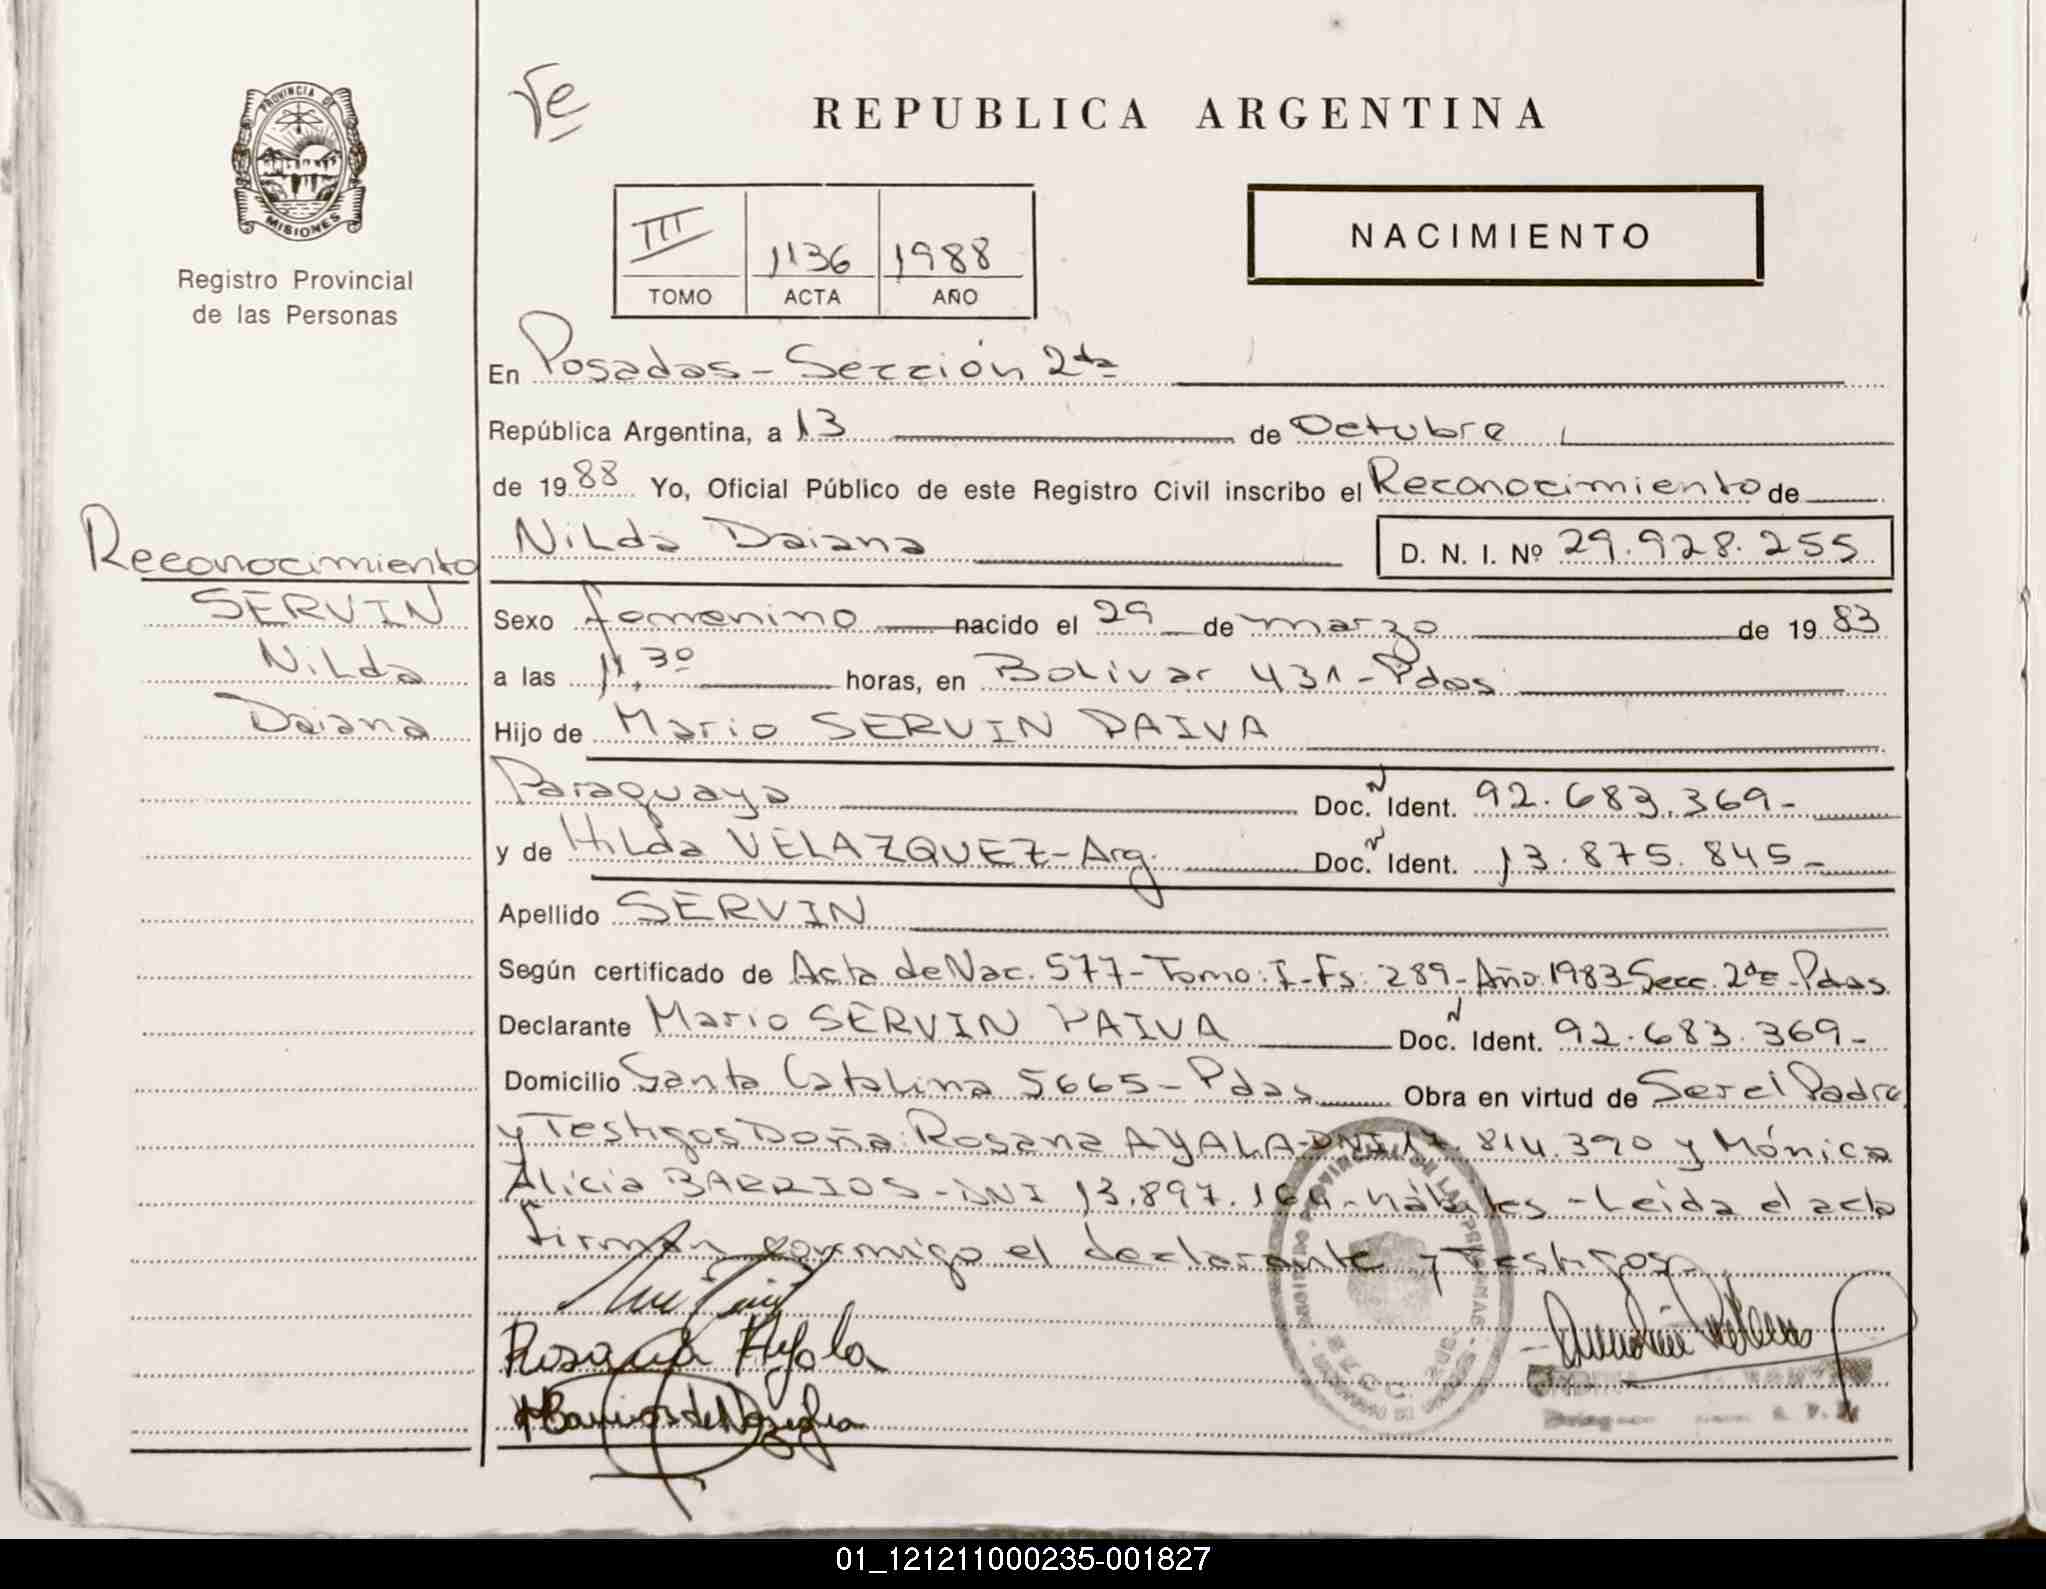 PROVINCIA DE
MISIONES
Registro Provincial
de las Personas
REPUBLICA ARGENTINA
NACIMIENTO
III 1136 1988
TOMO ACTA AÑO
En Posadas - Sección 2da
República Argentina, a 13 de Octubre
de 1988 Yo, Oficial Público de este Registro Civil inscribo el Reconocimiento de
Nilda Daiana D. N. I. Nº 29.928.255
Reconocimiento
SERVIN
Nilda
Daiana
Sexo femenino nacido el 29 de marzo de 1983
a las 11,30 horas, en Bolivar 431 - Pdas
Hijo de Mario SERVIN PAIVA
Paraguaya Doc. N Ident. 92.683.369-
y de Hilda VELAZQUEZ - Arg. Doc. N Ident. 13.875.845-
Apellido SERVIN
Según certificado de Acta de Nac. 577 - Tomo: I - Fs: 289 - Año 1983 Secc. 2da - Pdas
Declarante Mario SERVIN PAIVA Doc. N Ident. 92.683.369-
Domicilio Santa Catalina 5665 - Pdas Obra en virtud de Ser el Padre
y Testigos Doña: Rosana AYALA - DNI 17.814.390 y Mónica
Alicia BARRIOS - DNI 13.897.164 - hábiles - Leida el acta
firman conmigo el declarante y Testigos
Rosana Ayala
01_121211000235-001827